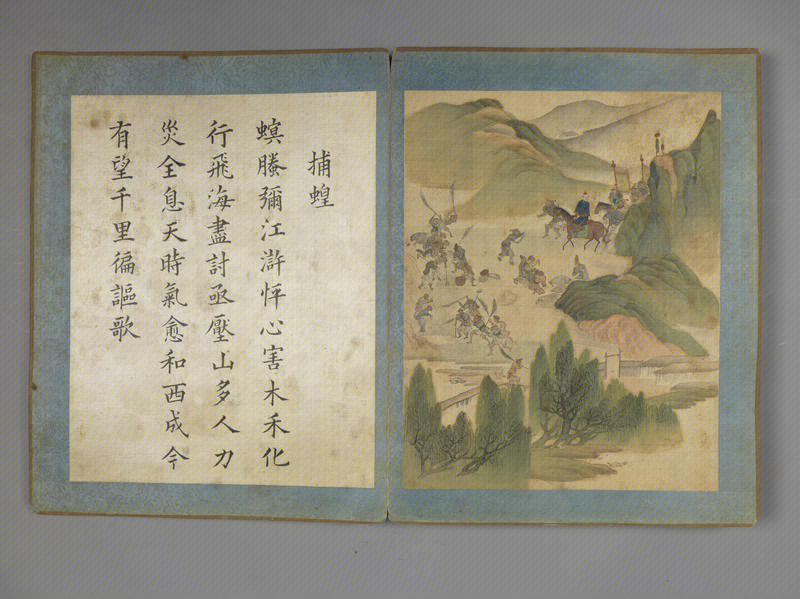 捕蝗
螟螣彌江滸怦心害木禾化
行飛海盡討亟壓山多人力
災全息天時氣愈和西成今
有望千里徧謳歌